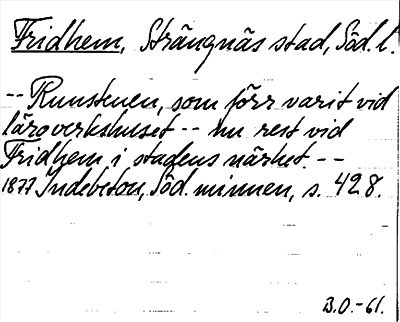 Fridhem, Strängnäs stad, Söd. l.
-- Runstenen, som förr varit vid
läroverkshuset -- nu rest vid
Fridhem i stadens närhet. --
1877 Indebetou, Söd. minnen, s. 428.
B.O.-61.